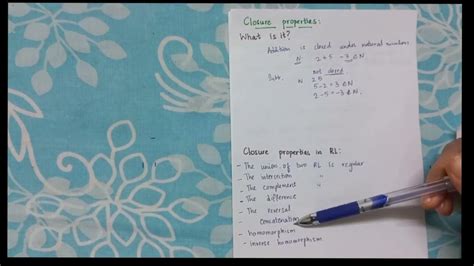 Closure properties:
What Is It?
Addition is closed under natural numbers
N 2+5 -3 ∈ N
Subt. not closed
N 2 5
5-2 = 3 ∈ N
2-5 = -3 ∉ N,
Closure properties in RL:
- The union of two RL is regular
- The intersection "
- The complement "
- The difference "
- The reversal
- concatenation
- homomorphism
- inverse homomorphism